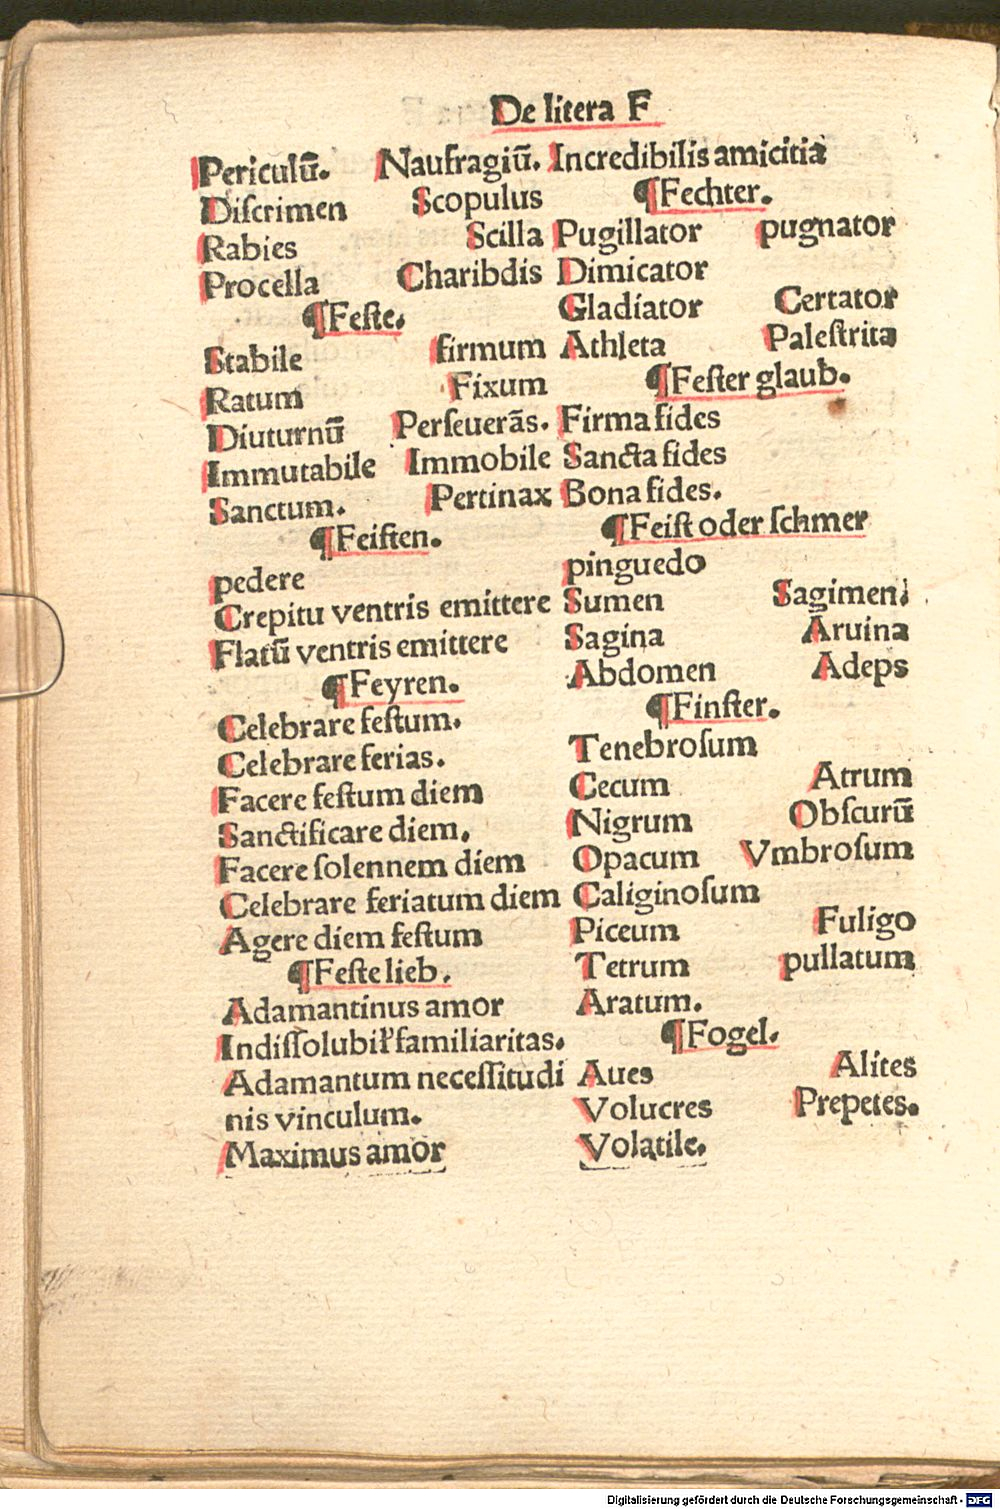 De litera F
Periculū. Naufragiū.
Diſcrimen Scopulus
Rabies Scilla
Procella Charibdis
¶Feſte.
Stabile firmum
Ratum Fixum
Diuturnū Perſeuerās.
Immutabile Immobile
Sanctum. Pertinax
¶Feiſten.
pedere
Crepitu ventris emittere
Flatū ventris emittere
¶Feyren.
Celebrare feſtum.
Celebrare ferias.
Facere feſtum diem
Sanctificare diem.
Facere ſolennem diem
Celebrare feriatum diem
Agere diem feſtum
¶Feſte lieb.
Adamantinus amor
Indiſſolubiłˀ familiaritas.
Adamantum neceſſitudi
nis vinculum.
Maximus amor
Incredibilis amicitia
¶Fechter.
Pugillator pugnator
Dimicator
Gladiator Certator
Athleta Paleſtrita
¶Feſter glaub.
Firma fides
Sancta fides
Bona fides.
¶Feiſt oder ſchmer
pinguedo
Sumen Sagimen.
Sagina Aruina
Abdomen Adeps
¶Finſter.
Tenebroſum
Cecum Atrum
Nigrum Obſcurū
Opacum Vmbroſum
Caliginoſum
Piceum Fuligo
Tetrum pullatum
Aratum.
¶Fogel.
Aues Alites
Volucres Prepetes.
Volatile.
Digitalisierung gefördert durch die Deutsche Forschungsgemeinschaft - DFG